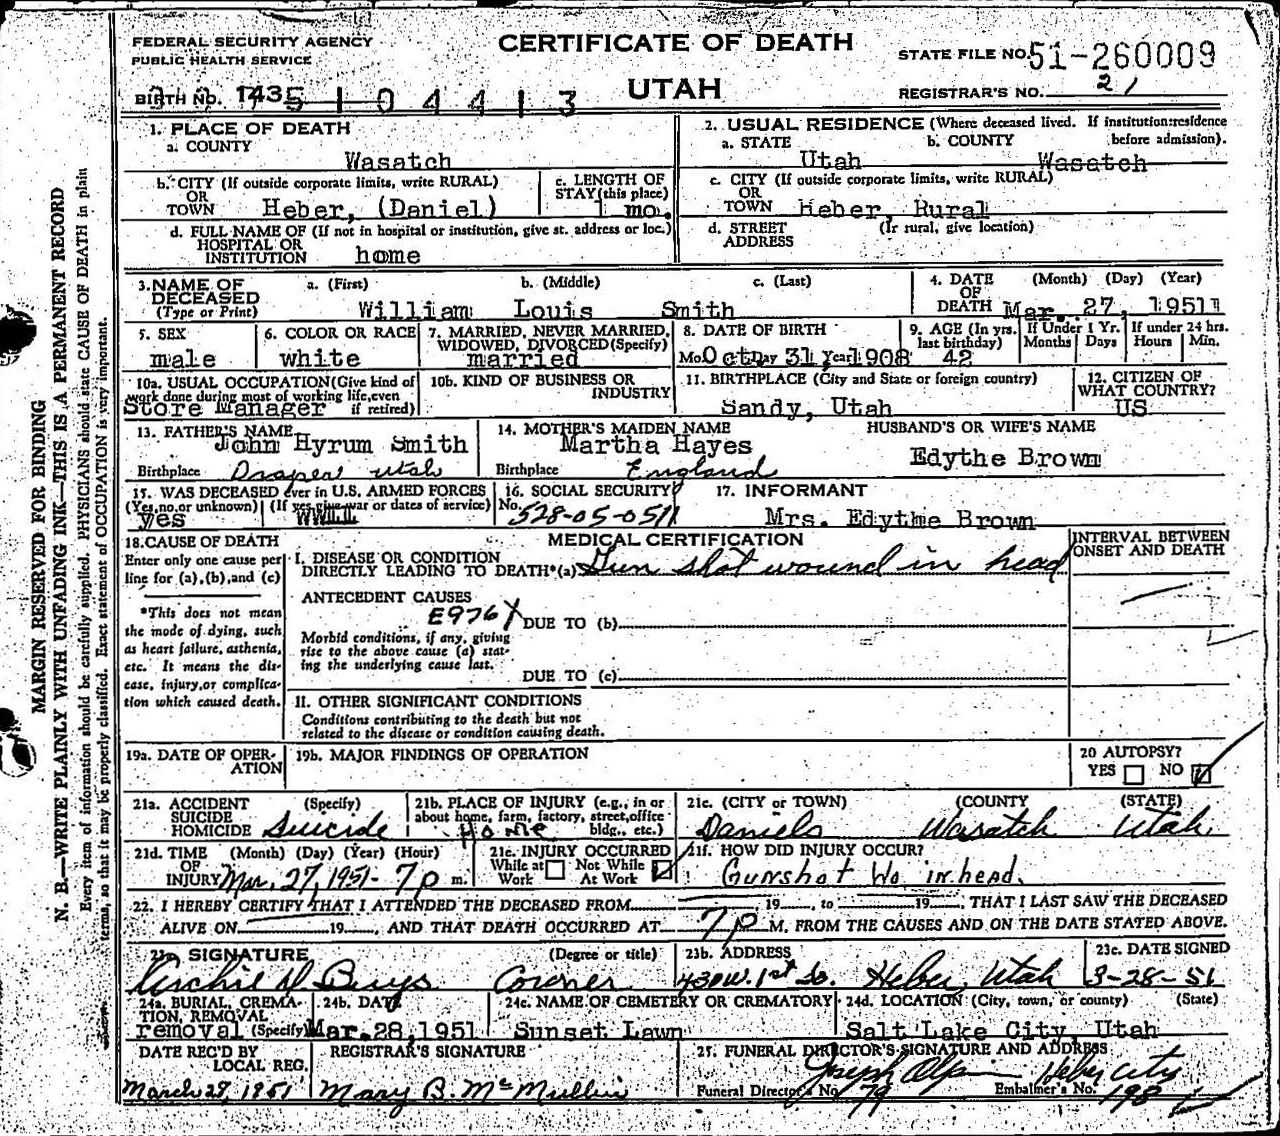 FEDERAL SECURITY AGENCY
PUBLIC HEALTH SERVICE
CERTIFICATE OF DEATH
UTAH
STATE FILE NO. 51-260009
REGISTRAR'S NO. 21
BIRTH NO. 1435 1 0 4 4 1 3
1. PLACE OF DEATH
a. COUNTY
Wasatch
2. USUAL RESIDENCE (Where deceased lived. If institution:residence before admission).
a. STATE Utah b. COUNTY Wasatch
b. CITY (If outside corporate limits, write RURAL)
OR
TOWN Heber, (Daniel)
c. LENGTH OF
STAY (this place)
1 mo.
c. CITY (If outside corporate limits, write RURAL)
OR
TOWN Heber, Rural
d. FULL NAME OF (If not in hospital or institution, give st. address or loc.)
HOSPITAL OR
INSTITUTION home
d. STREET (If rural, give location)
ADDRESS
3. NAME OF
DECEASED
(Type or Print)
a. (First) b. (Middle) c. (Last)
William Louis Smith
4. DATE (Month) (Day) (Year)
OF
DEATH Mar. 27, 1951
5. SEX
male
6. COLOR OR RACE
white
7. MARRIED, NEVER MARRIED,
WIDOWED, DIVORCED (Specify)
married
8. DATE OF BIRTH
Mo. Oct Day 31 Year 1908
9. AGE (In yrs. last birthday)
42
If Under 1 Yr.
Months Days
If under 24 hrs.
Hours Min.
10a. USUAL OCCUPATION (Give kind of
work done during most of working life, even
if retired)
Store Manager
10b. KIND OF BUSINESS OR
INDUSTRY
11. BIRTHPLACE (City and State or foreign country)
Sandy, Utah
12. CITIZEN OF
WHAT COUNTRY?
US
13. FATHER'S NAME
John Hyrum Smith
Birthplace Draper Utah
14. MOTHER'S MAIDEN NAME
Martha Hayes
Birthplace England
HUSBAND'S OR WIFE'S NAME
Edythe Brown
15. WAS DECEASED ever in U.S. ARMED FORCES
(Yes, no, or unknown) (If yes, give war or dates of service)
yes WWII
16. SOCIAL SECURITY
No. 528-05-0511
17. INFORMANT
Mrs. Edythe Brown
18. CAUSE OF DEATH
Enter only one cause per
line for (a), (b), and (c)
*This does not mean
the mode of dying, such
as heart failure, asthenia,
etc. It means the dis-
ease, injury, or complica-
tion which caused death.
MEDICAL CERTIFICATION
INTERVAL BETWEEN
ONSET AND DEATH
I. DISEASE OR CONDITION
DIRECTLY LEADING TO DEATH*(a) Gun shot wound in head
ANTECEDENT CAUSES
E976X
DUE TO (b)
Morbid conditions, if any, giving
rise to the above cause (a) stat-
ing the underlying cause last.
DUE TO (c)
II. OTHER SIGNIFICANT CONDITIONS
Conditions contributing to the death but not
related to the disease or condition causing death.
19a. DATE OF OPER-
ATION
19b. MAJOR FINDINGS OF OPERATION
20 AUTOPSY?
YES NO
21a. ACCIDENT (Specify)
SUICIDE
HOMICIDE Suicide
21b. PLACE OF INJURY (e.g., in or
about home, farm, factory, street, office
bldg., etc.)
Home
21c. (CITY or TOWN) (COUNTY (STATE)
Daniels Wasatch Utah.
21d. TIME (Month) (Day) (Year) (Hour)
OF
INJURY Mar. 27, 1951- 7 p m.
21e. INJURY OCCURRED
While at Work Not While At Work
21f. HOW DID INJURY OCCUR?
Gunshot Wo in head.
22. I HEREBY CERTIFY THAT I ATTENDED THE DECEASED FROM 19 , to 19 , THAT I LAST SAW THE DECEASED
ALIVE ON 19 , AND THAT DEATH OCCURRED AT 7 P M, FROM THE CAUSES AND ON THE DATE STATED ABOVE.
SIGNATURE (Degree or title)
Archie D Buys Coroner
23b. ADDRESS
430 W. 1st So. Heber, Utah
23c. DATE SIGNED
3-28-51
24a. BURIAL, CREMA-
TION, REMOVAL
(Specify)
removal
24b. DATE
Mar. 28, 1951
24c. NAME OF CEMETERY OR CREMATORY
Sunset Lawn
24d. LOCATION (City, town, or county) (State)
Salt Lake City, Utah
DATE REC'D BY
LOCAL REG.
March 29, 1951
REGISTRAR'S SIGNATURE
Mary B. McMullin
25. FUNERAL DIRECTOR'S SIGNATURE AND ADDRESS
Heber City
Funeral Director's No 79 Embalmer's No. 198
MARGIN RESERVED FOR BINDING
N. B.—WRITE PLAINLY WITH UNFADING INK—THIS IS A PERMANENT RECORD
Every item of information should be carefully supplied. PHYSICIANS should state CAUSE OF DEATH in plain
terms, so that it may be properly classified. Exact statement of OCCUPATION is very important.